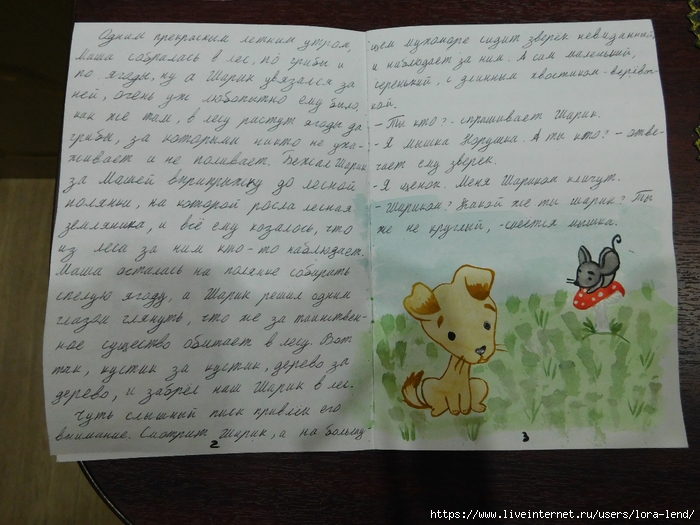 Одним прекрасным летним утром,
Маша собралась в лес, по грибы и
по ягоды, ну а Шарик увязался за
ней, очень уж любопытно ему было,
как же там, в лесу растут ягоды да
грибы, за которыми никто не уха-
живает и не поливает. Бежал Шарик
за Машей вприпрыжку до лесной
полянки, на которой росла лесная
земляника, и всё ему козалось, что
из леса за ним кто-то наблюдает.
Маша осталась на поляне собирать
спелую ягоду, а Шарик решил одним
глазом глянуть, что же за таинствен-
ное существо обитает в лесу. Вот
так, кустик за кустик, дерево за
дерево, и забрёл наш Шарик в лес.
Чуть слышный писк привлек его
внимание. Смотрит Шарик, а на большу
2
щем мухоморе сидит зверёк невиданный
и наблюдает за ним. А сам маленький,
серенький, с длинным хвостиком-верёвоч-
кой.
- Ты кто? - спрашивает Шарик.
- Я мышка Норушка. А ты кто? - отве-
чает ему зверёк.
- Я щенок. Меня Шариком кличут.
- Шариком? Какой же ты шарик? Ты
же не круглый, - смеётся мышка.
3
https://www.liveinternet.ru/users/lora-lend/